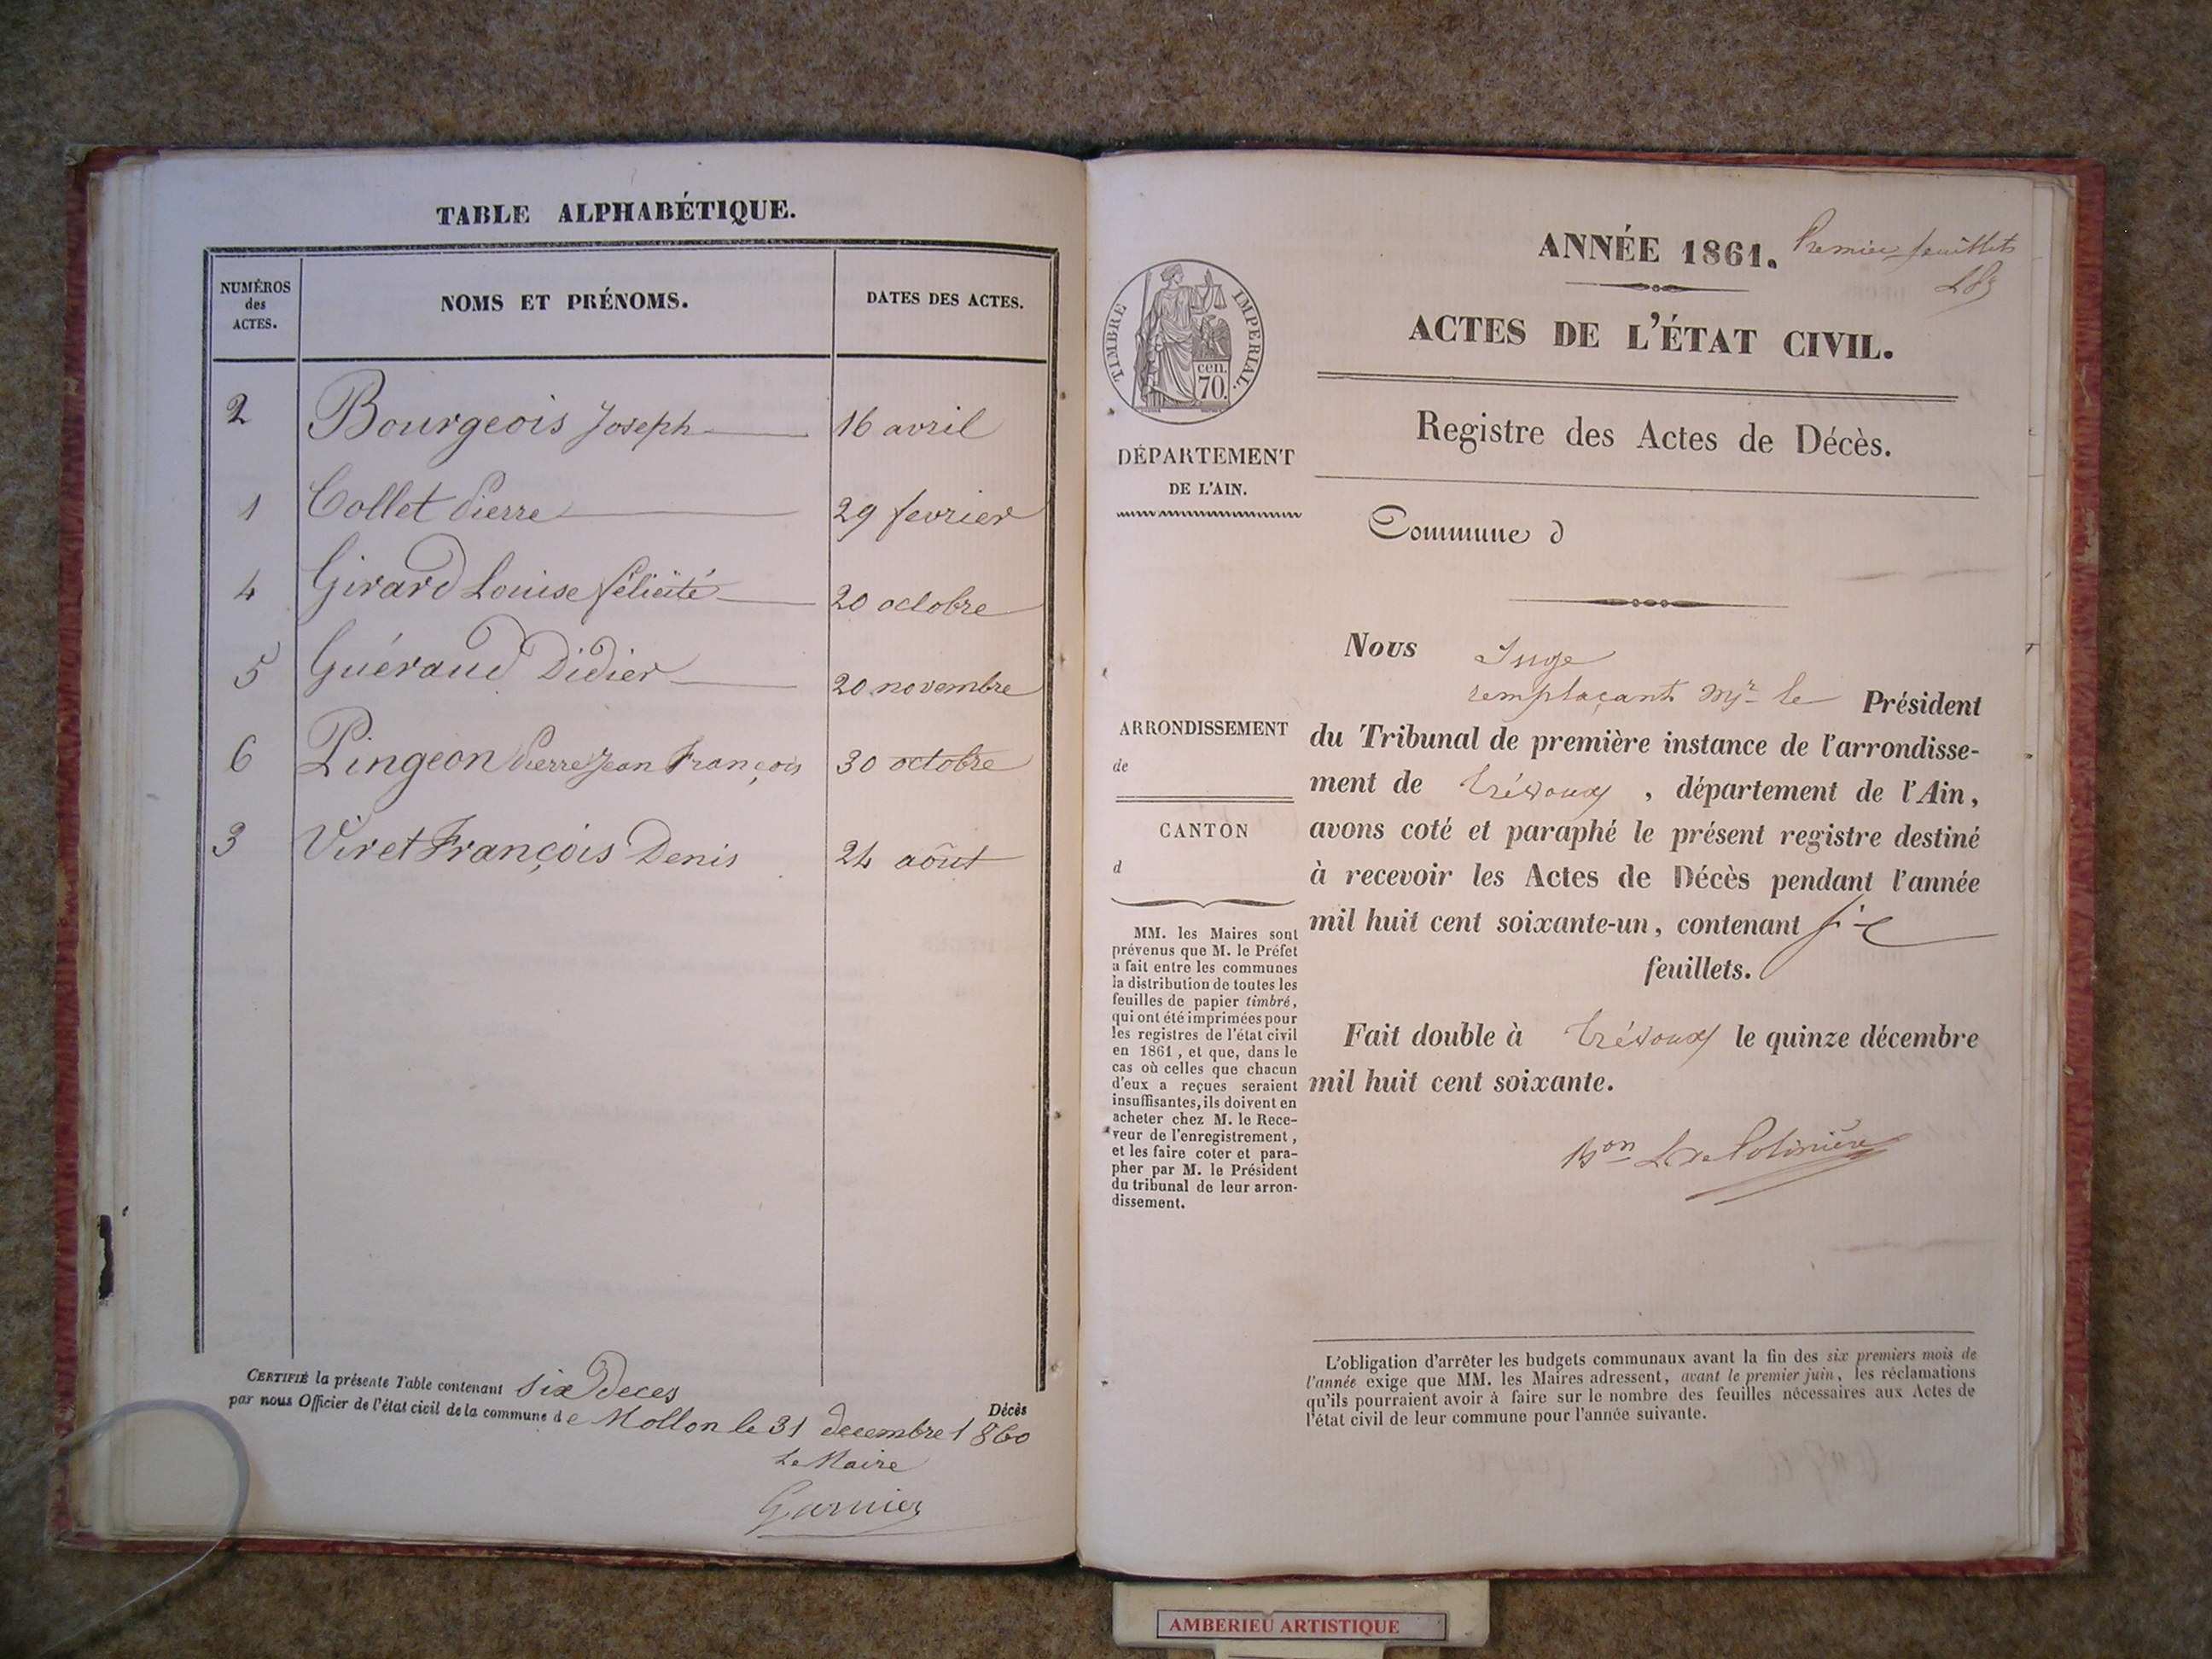 TABLE ALPHABÉTIQUE.
NUMÉROS des ACTES. NOMS ET PRÉNOMS. DATES DES ACTES.
2 Bourgeois Joseph 16 avril
1 Collet Pierre 29 fevrier
4 Girard Louise félicité 20 octobre
5 Guéraud Didier 20 novembre
6 Pingeon Pierre Jean François 30 octobre
3 Viret François Denis 24 août
CERTIFIÉ la présente Table contenant six Deces Décès
par nous Officier de l'état civil de la commune de Mollon le 31 decembre 1860
Le Maire
Garnier
ANNÉE 1861. Premier feuillets
TIMBRE IMPERIAL.
cen.
70.
ACTES DE L'ÉTAT CIVIL.
Registre des Actes de Décès.
DÉPARTEMENT
DE L'AIN.
Commune d
ARRONDISSEMENT
de
CANTON
d
MM. les Maires sont
prévenus que M. le Préfet
a fait entre les communes
la distribution de toutes les
feuilles de papier timbré,
qui ont été imprimées pour
les registres de l'état civil
en 1861, et que, dans le
cas où celles que chacun
d'eux a reçues seraient
insuffisantes, ils doivent en
acheter chez M. le Rece-
veur de l'enregistrement,
et les faire coter et para-
pher par M. le Président
du tribunal de leur arron-
dissement.
Nous Juge
remplaçant Mr le Président
du Tribunal de première instance de l'arrondisse-
ment de Trévoux, département de l'Ain,
avons coté et paraphé le présent registre destiné
à recevoir les Actes de Décès pendant l'année
mil huit cent soixante-un, contenant six
feuillets.
Fait double à Trévoux le quinze décembre
mil huit cent soixante.
Bon
L'obligation d'arrêter les budgets communaux avant la fin des six premiers mois de
l'année exige que MM. les Maires adressent, avant le premier juin, les réclamations
qu'ils pourraient avoir à faire sur le nombre des feuilles nécessaires aux Actes de
l'état civil de leur commune pour l'année suivante.
AMBERIEU ARTISTIQUE